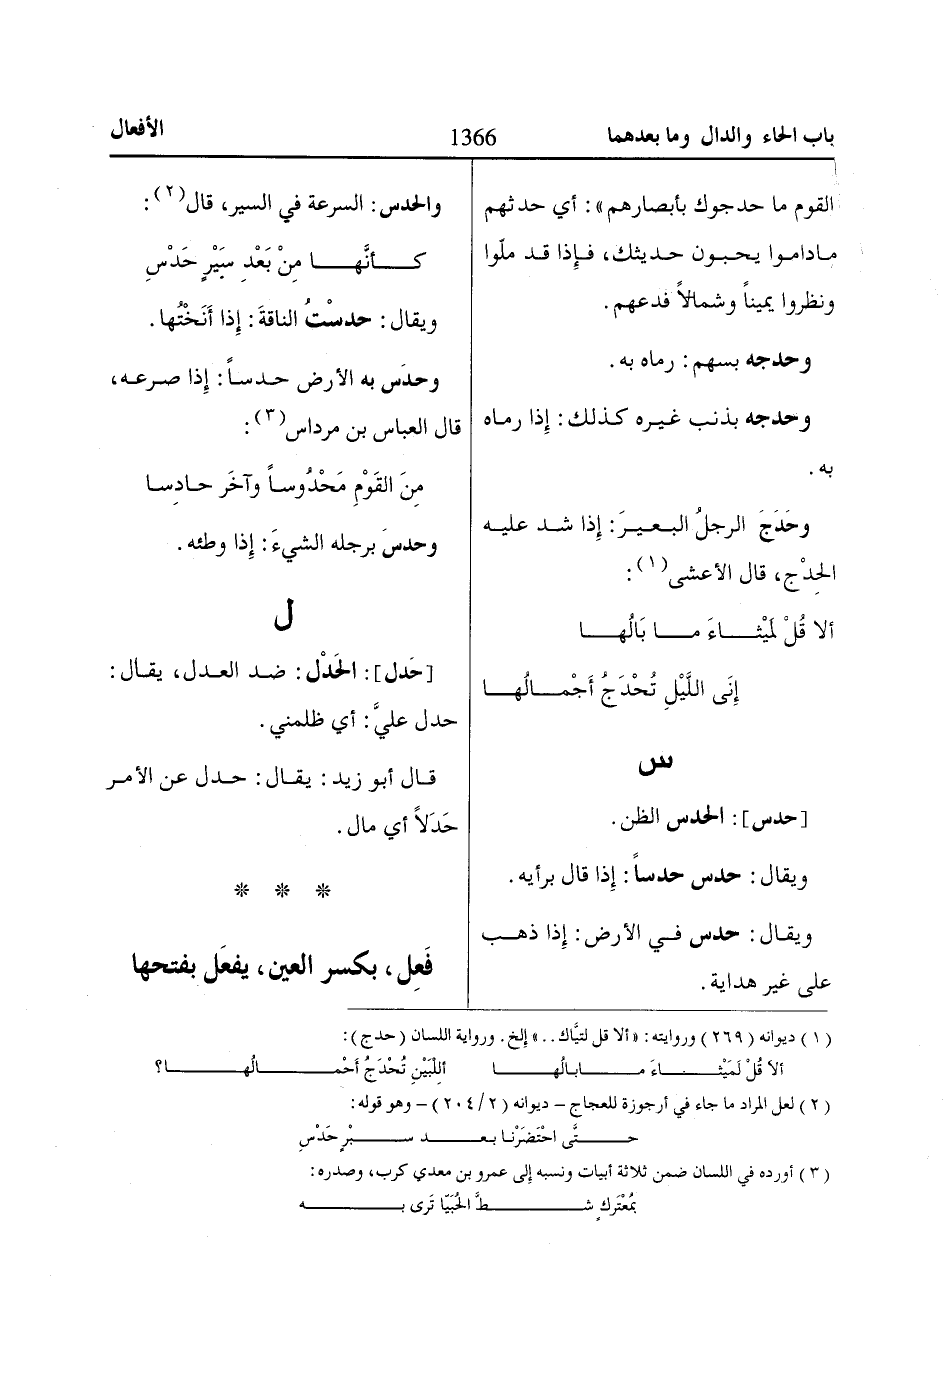 باب الحاء والدال وما بعدهما 1366 الأفعال
القوم ما حدجوك بأبصارهم»: أي حدثهم
ماداموا يحبون حديثك، فإذا قد ملّوا
ونظروا يميناً وشمالاً فدعهم.
وحدجه بسهم: رماه به.
وحدجه بذنب غيره كذلك: إذا رماه
به.
وحَدَجَ الرجلُ البعيرَ: إذا شد عليه
الحِدْج، قال الأعشى(١):
ألا قُلْ لَمَيْثاءَ ما بَالُها
إِنَى اللَّيْلِ تُحْدَجُ أَجْمالُها
س
[حدس]: الحدس الظن.
ويقال: حدس حدساً: إذا قال برأيه.
ويقال: حدس في الأرض: إذا ذهب
على غير هداية.
والحدس: السرعة في السير، قال(٢):
كأنَّها مِنْ بَعْدِ سَيْرٍ حَدْسِ
ويقال: حدسْتُ الناقةَ: إذا أَنَخْتُها.
وحدَس به الأرض حدساً: إذا صرعه،
قال العباس بن مرداس(٣):
مِنَ القَوْمِ مَحْدُوساً وآخَر حادِسا
وحدسَ برجله الشيءَ: إذا وطئه.
ل
[حَدل]: الحَدْل: ضد العدل، يقال:
حدل عليَّ: أي ظلمني.
قال أبو زيد: يقال: حدل عن الأمر
حَدَلاً أي مال.
* * *
فَعِل، بكسر العين، يفعَل بفتحها
(١) ديوانه (٢٦٩) وروايته: «ألا قل لتيَّاك..» إلخ. ورواية اللسان (حدج):
ألاَ قُلْ لَمَيْثاءَ مابالُها أللْبَيْنِ تُحْدَجُ أحْمالُها؟
(٢) لعل المراد ما جاء في أرجوزة للعجاج – ديوانه (٢/ ٢٠٤) – وهو قوله:
حتَّى احْتَضَرْنا بعد سبْرٍ حَدْسِ
(٣) أورده في اللسان ضمن ثلاثة أبيات ونسبه إلى عمرو بن معدي كرب، وصدره:
بمُعْتَركٍ شطَّ الحُبَيَّا تَرى به